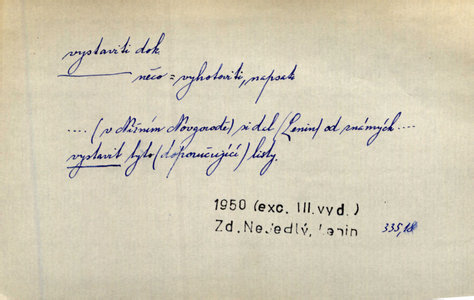 vystaviti dok.
něco = vyhotoviti, napsati
.... (v Nižním Novgorodě) si dal (Lenin) od známých ....
vystavit tyto (doporučující) listy.
1950 (exc. III.vyd.)
Zd. Nejedlý, Lenin 335,18